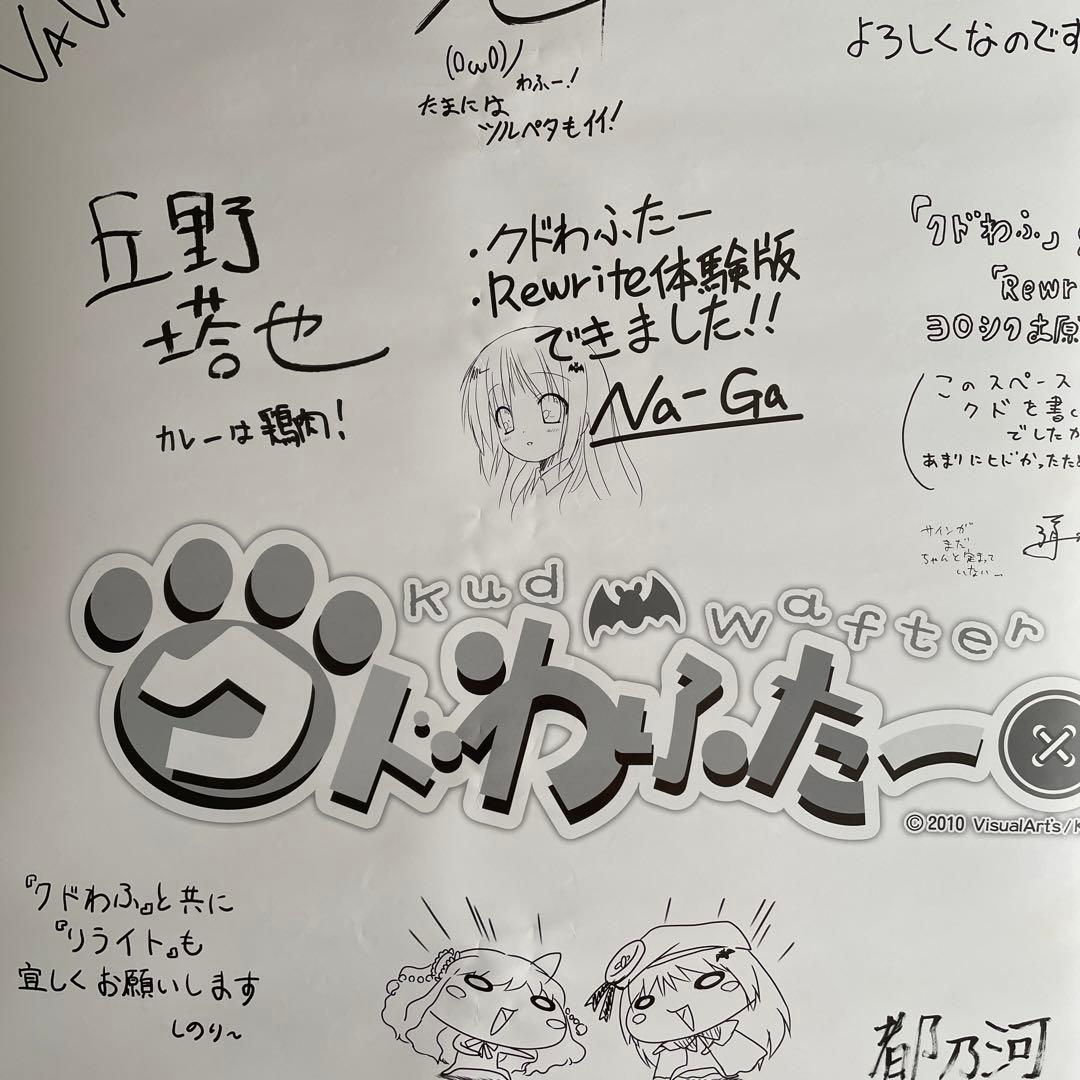 VAVA
(OwO)/
わふー!
たまには
ツルペタもイイ!
よろしくなのです
丘野
塔也
カレーは鶏肉!
・クドわふたー
・Rewrite体験版
できました!!
Na-Ga
「クドわふ」
『Rewr
ヨロシクお願
このスペース
クドを書
でしたか
あまりにヒドかったた
サインが
まだ
ちゃんと定まって
いない…
kud wafter
クドわふたー
© 2010 VisualArt's/K
『クドわふ』と共に
『リライト』も
宜しくお願いします
しのり～
都乃河